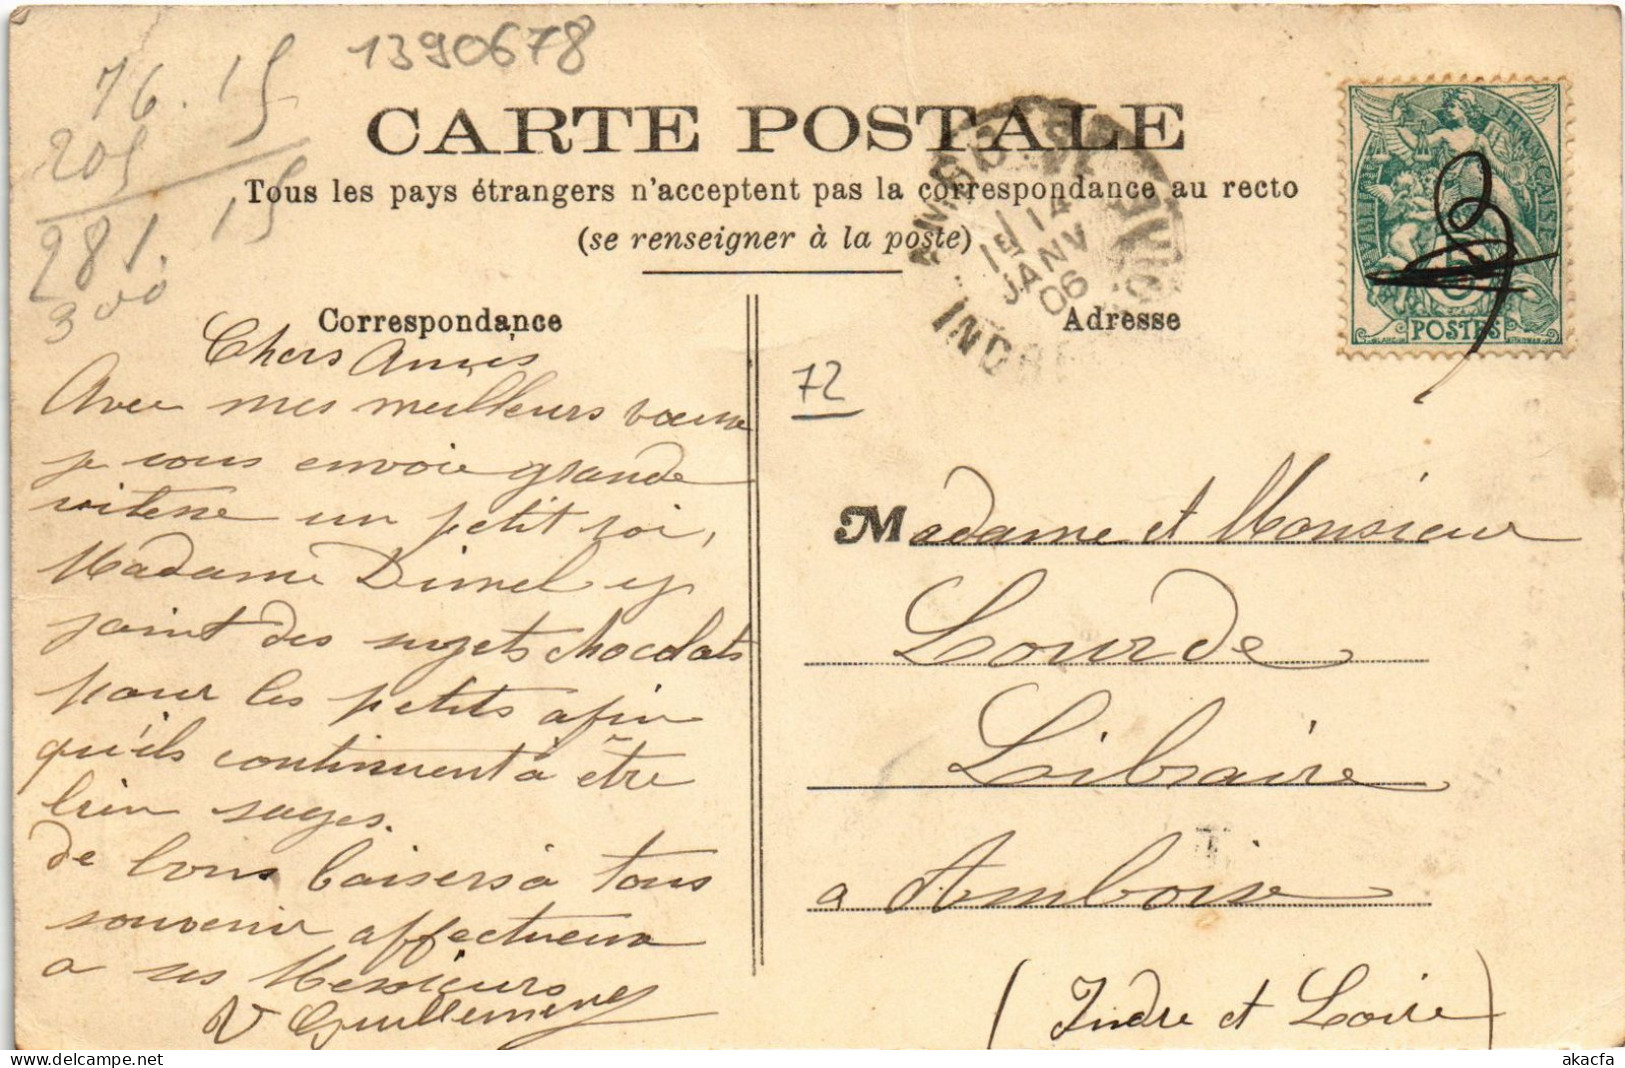 1390678
76.15
205
281.15
300
CARTE POSTALE
Tous les pays étrangers n'acceptent pas la correspondance au recto
(se renseigner à la poste)
1 14
1er
JANV
06
INDRE
RÉPUBLIQUE FRANÇAISE
5
POSTES
Correspondance
Adresse
72
Chers Amis
Avec mes meilleurs vœux
je vous envoie grande
vitesse un petit roi,
Madame Dimel y
joint des sujets chocolats
pour les petits afin
qu'ils continuent à être
bien sages.
de bons baisers à tous
souvenir affectueux
a ses Messieurs
V Guillemine
Madame et Monsieur
Lourde
Libraire
a Amboise
(Indre et Loire)
akacfa